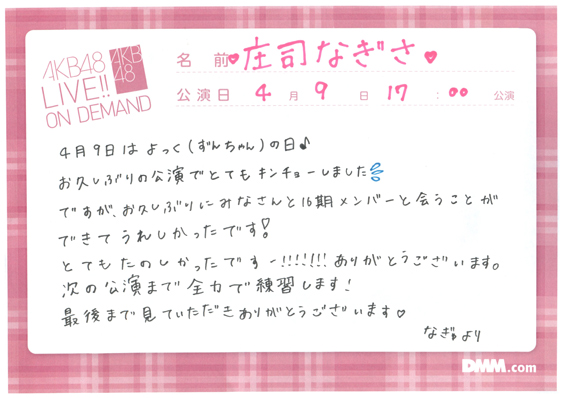 AKB48
LIVE!!
ON DEMAND
AKB
48
名 前 ♥庄司なぎさ♥
公演日 4 月 9 日 17 : 00 公演
4月9日はよっく(ずんちゃん)の日♪
お久しぶりの公演でとてもキンチョーしました💦
ですが、お久しぶりにみなさんと16期メンバーと会うことが
できてうれしかったです!
とてもたのしかったですー!!!!!!!ありがとうございます。
次の公演まで全力で練習します!
最後まで見ていただきありがとうございます♡
なぎゅより
DMM.com